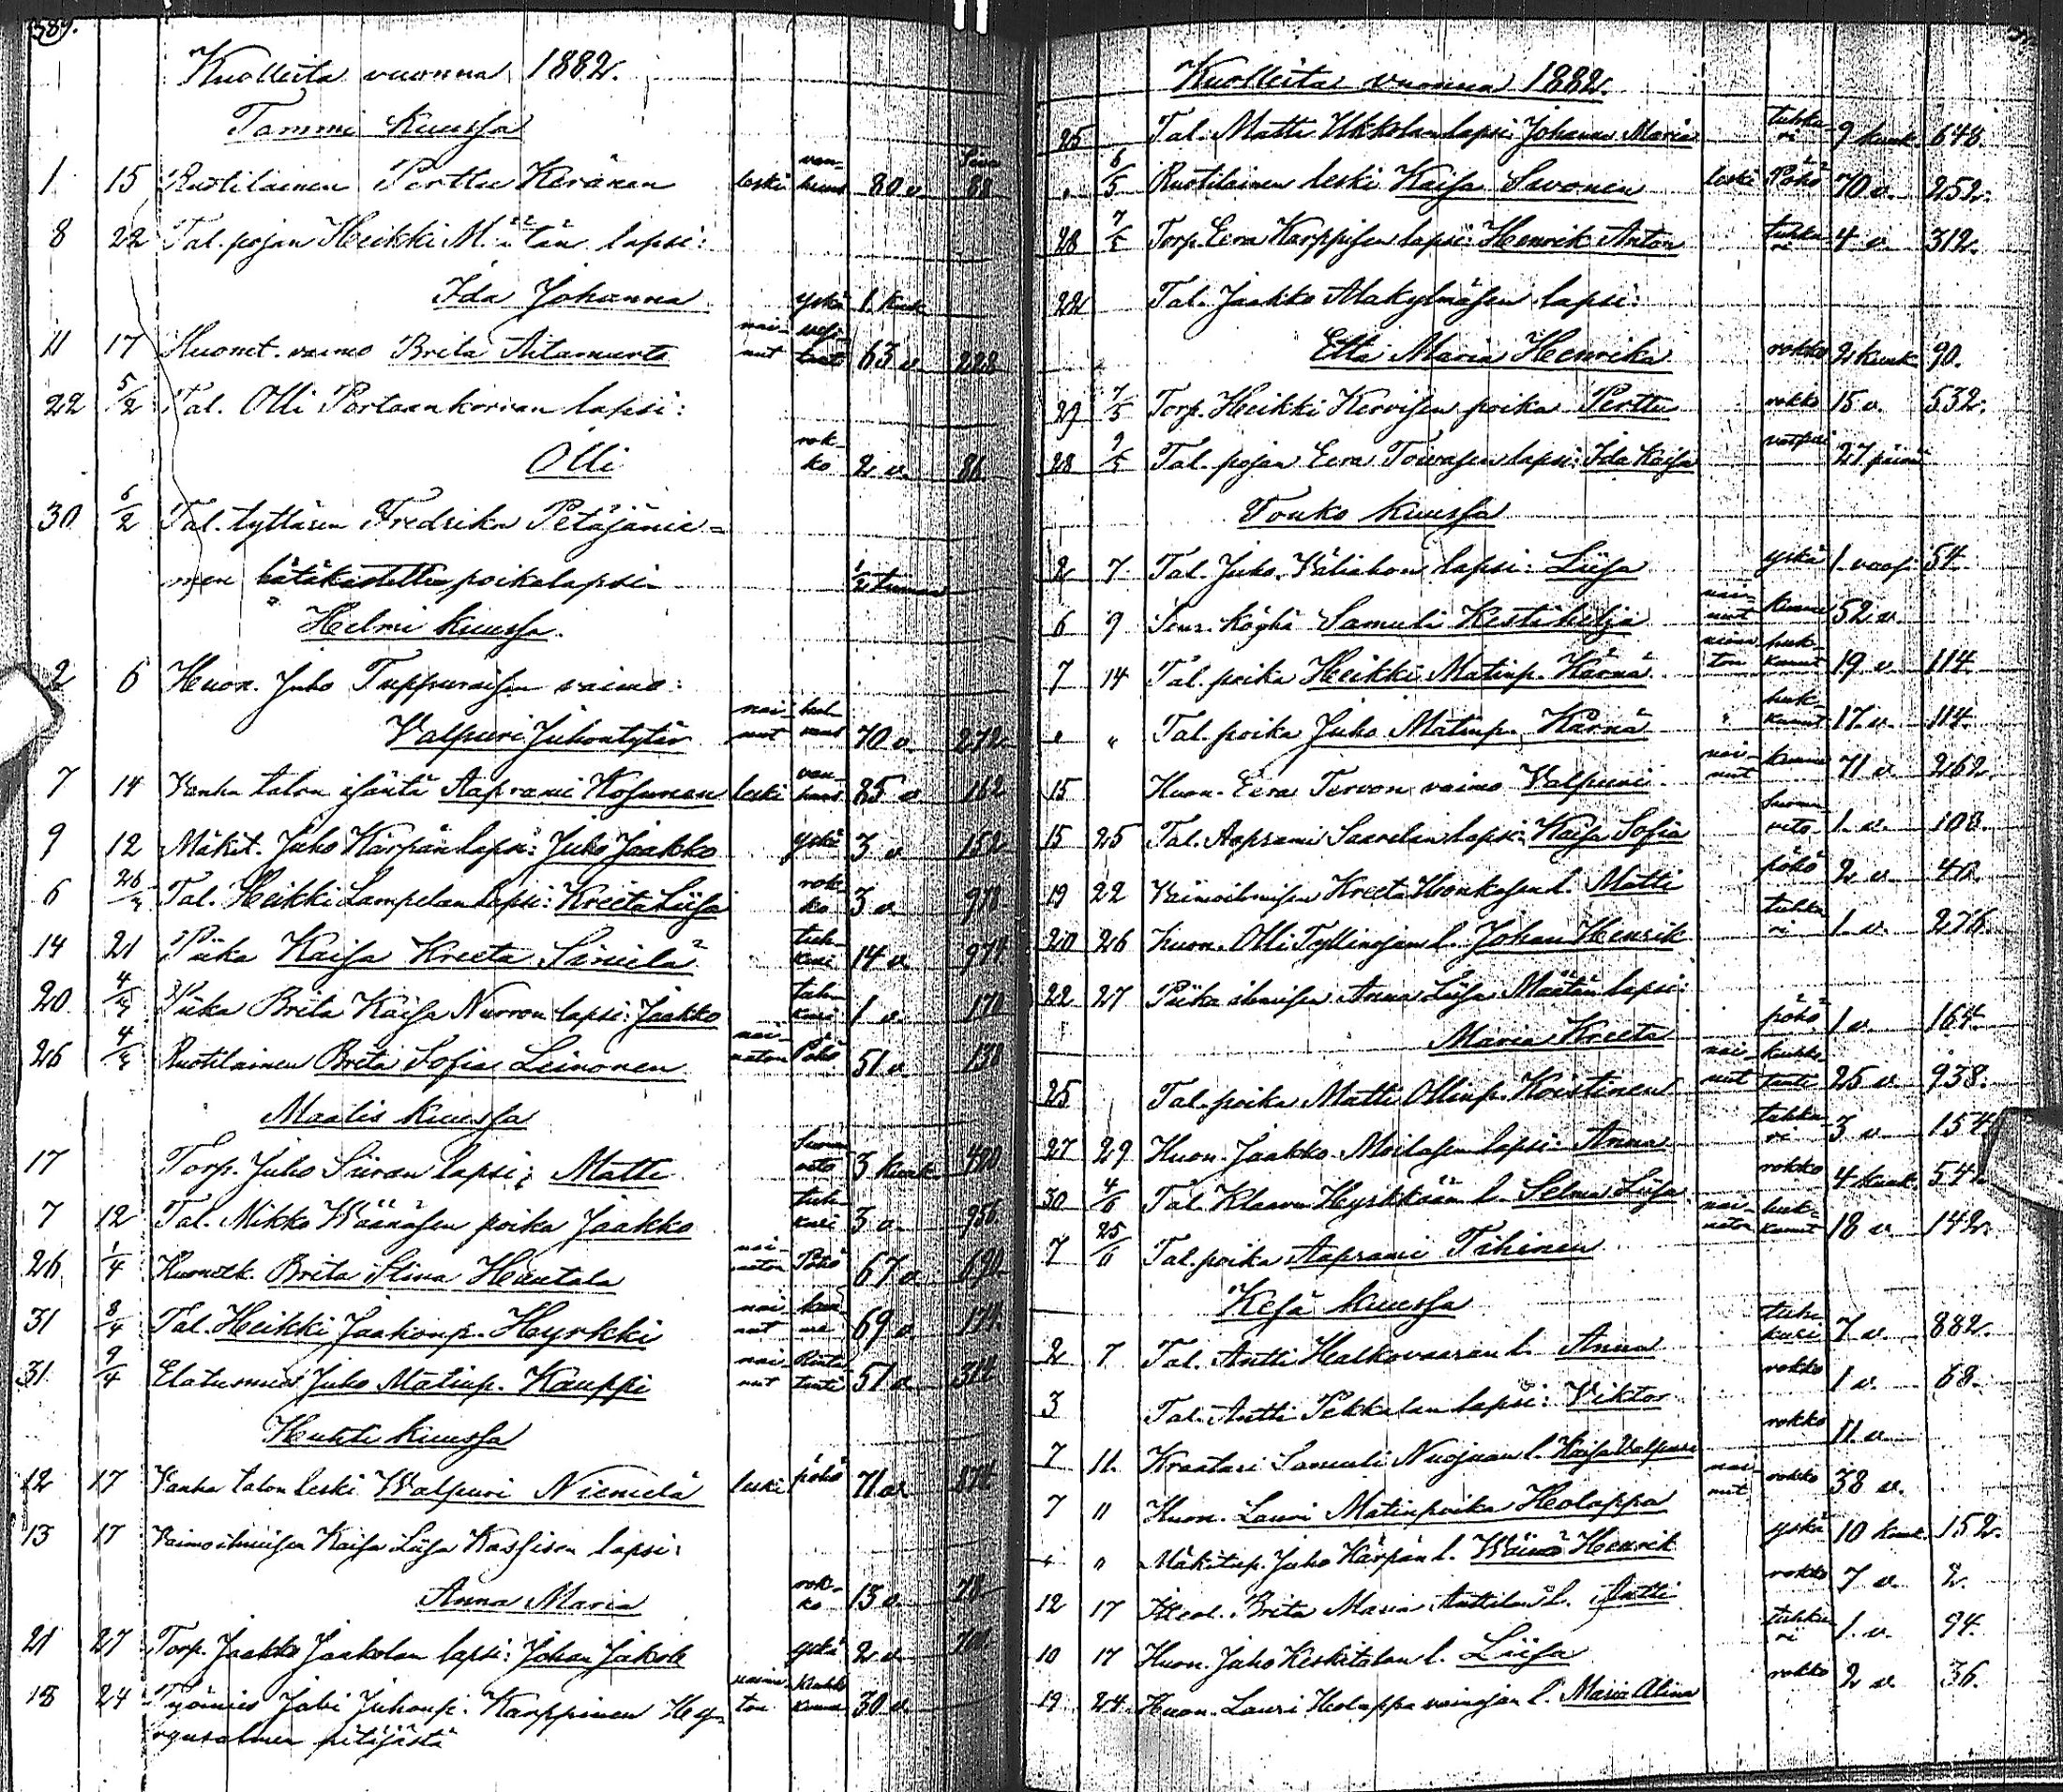 589.
Kuolleita vuonna 1882.
Tammi kuussa
Sivu
1 15 Ruotilainen Perttu Keränen leski van-huus 80 v. 88
8 22 Tal. pojan Heikki Määtän lapsi:
Ida Johanna yskä 1 kuuk
11 17 Huonet. vaimo Brita Aitamurto nai-nut 63 v. 228
22 5/2 Tal. Olli Portaankorvan lapsi:
Olli rok-ko 2 v. 86
30 5/2 Tal. tyttären Fredrika Petäjänie=
men hätäkastettu poikalapsi 1/2 tunnin
Helmi kuussa.
2 6 Huon. Juho Tuppuraisen vaimo:
Valpuri Juhontytär nai-nut 70 v. 272
7 14 Vanha talon isäntä Aaprami Kosunen leski van-huus 85 v. 162
9 12 Mäkit. Juho Kärpän lapsi: Juho Jaakko yskä 3 v. 152
6 26/ Tal. Heikki Lampelan lapsi: Kreeta Liisa rok-ko 3 v. 978
14 21 Piika Kaisa Kreeta Sirvielä tuh-kuri 14 v. 974
20 4/4 Piika Brita Kaisa Nurron lapsi: Jaakko tuh-kuri 1 v. 170
26 4/4 Ruotilainen Brita Sofia Leinonen nai-maton Pöhö 51 v. 138
Maalis kuussa
17 Torp. Juho Siiran lapsi: Matti Suoni-veto 3 kuuk. 480
7 12 Tal. Mikko Wäänäsen poika Jaakko tuh-kuri 3 v. 956
26 1/4 Huonek. Brita Stina Hautala nai-maton Pöhö 67 v. 690
31 8/4 Tal. Heikki Jaakonp. Hyrkki nai-nut kuu-me 69 v.
31 9/4 Elatusmies Juho Matinp. Kauppi nai-nut Rinta-tauti 51 v. 314
Huhti kuussa
12 17 Vanha talon leski Walpuri Niemelä leski pöhö 71 v. 874
13 17 Vaimoihmisen Kaisa Liisa Kassisen lapsi:
Anna Maria rok-ko 13 v. 78
21 27 Torp. Jaakko Jaakolan lapsi: Johan Jakob yskä 2 v.
18 24 Työmies Juhonp. Karppinen Hy-naima-ton 30 v.
rynsalmen pitäjästä
Kuolleita vuonna 1882.
25 Tal. Matti Ukkolan lapsi: Johanna Maria tuhku-ri 9 kuuk. 648.
" 6/5 Ruotilainen leski Kaisa Savonen leski Pöhö 70 v. 252.
28 7/5 Torp. Eera Karppisen lapsi: Henrik Anton tuhku-ri 4 v. 312.
22 Tal. Jaakko Alakylmäsen lapsi:
Etta Maria Henrika rokko 2 kuuk 90.
29 7/5 Torp. Heikki Kervisen poika Perttu rokko 15 v. 532.
28 9/5 Tal. pojan Eera Toivasen lapsi: Ida Kaisa 27 päivä
Touko kuussa
2 7 Tal. Juho Väliahon lapsi: Liisa yskä 1 vuosi 54
6 9 Seur. köyhä Samuli Kestikelja nai-nut kuume 52 v.
7 14 Tal. poika Heikki Matinp. Kärnä naima-ton huk-kunut 19 v. 114
" " Tal. poika Juho Matinp. Kärnä " huk-kunut 17 v. 114.
15 Huon. Eera Tervon vaimo Walpuri nai-nut kuume 71 v. 262.
15 25 Tal. Aaprami Saarelan lapsi: Kaisa Sofia Suonen-veto 1 v. 108.
19 22 Vaimoihmisen Kreeta Honkasen l. Matti pöhö 2 v. 42.
20 26 Huon. Olli Tyllinojan l. Johan Henrik tuhku-ri 1 v. 276.
22 27 Piika ihmisen Anna Liisa Määtän lapsi:
Maria Kreeta pöhö 1 v. 164.
25 Tal. poika Matti Ollinp. Koistinen nai-nut keuhko-tauti 25 v. 938.
27 29 Huon. Jaakko Moilasen lapsi: Anna tuhku-ri 3 v. 154.
30 4/6 Tal. Klaavu Hyrkkään l. Selma Liisa rokko 4 kuuk. 54.
7 25/6 Tal. poika Aaprami Tihinen nai-maton huk-kunut 18 v. 142.
Kesä kuussa
2 7 Tal. Antti Halkovaaran l. Anna tuh-kuri 7 v. 882.
3 Tal. Antti Pekkalan lapsi: Viktor rokko 1 v. 68.
7 11. Kraatari Samuli Nuojuan l. Kaisa Valpuri rokko 11 v.
7 11 Huon. Lauri Matinpoika Heolappa nai-nut rokko 38 v.
" " Mäkitup. Juho Kärpän l. Wäinö Henrik yskä 10 kuuk. 152.
12 17 Brita Maria Anttilan l. Antti rokko 7 v. 2.
10 17 Huon. Juho Keskitalon l. Liisa tuhku-ri 1 v. 94
19 24. Huon. Lauri Heolappa vainajan l. Maria Alina rokko 2 v. 36.